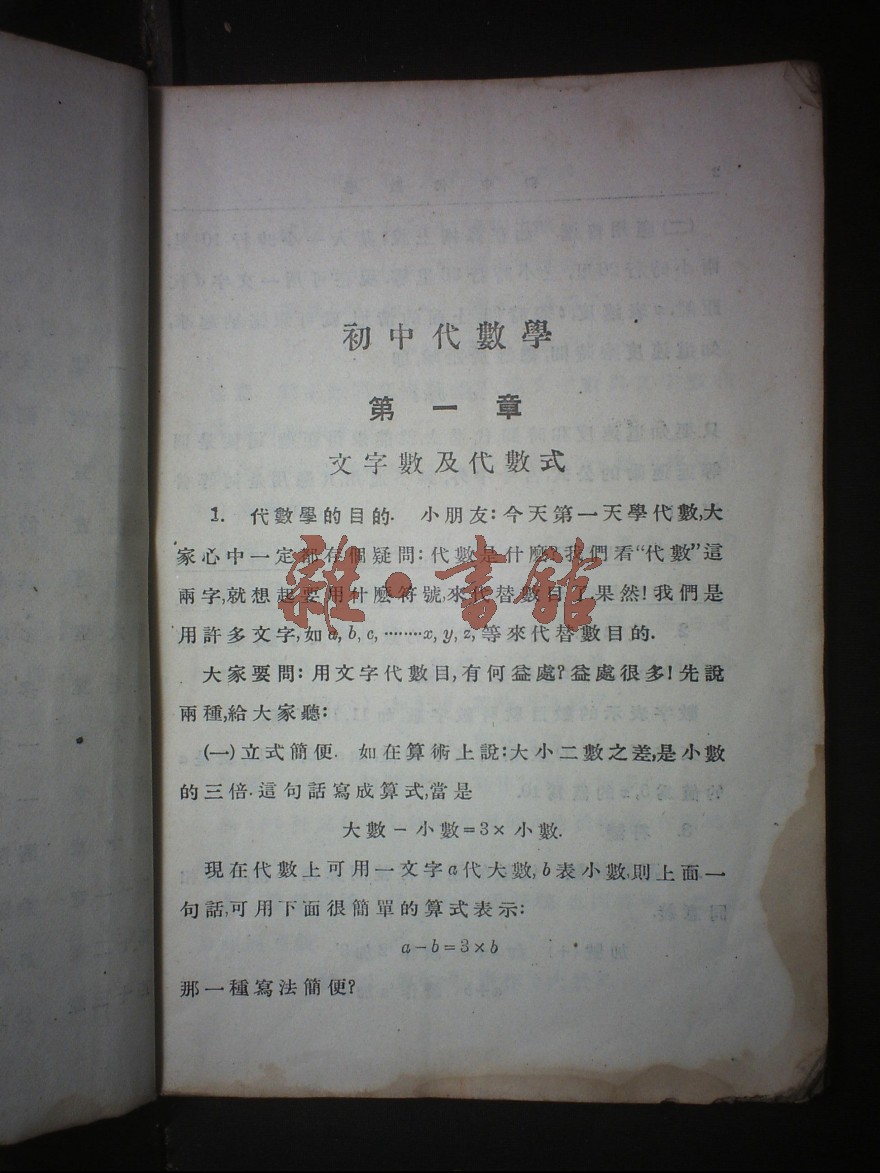 初中代數學
第一章
文字數及代數式
1. 代數學的目的. 小朋友:今天第一天學代數,大
家心中一定都存個疑問:代數是什麼?我們看“代數”這
兩字,就想起要用什麼符號,來代替數目了.果然!我們是
用許多文字,如a, b, c, ………x, y, z, 等來代替數目的.
大家要問:用文字代數目,有何益處?益處很多!先說
兩種,給大家聽:
(一)立式簡便. 如在算術上說:大小二數之差,是小數
的三倍.這句話寫成算式,當是
大數-小數=3×小數.
現在代數上可用一文字a代大數,b表小數.則上面一
句話,可用下面很簡單的算式表示:
a-b=3×b
那一種寫法簡便?
雜·書館